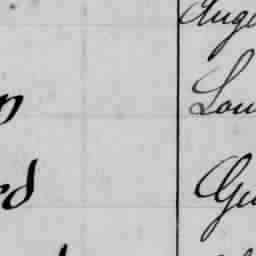 Aug
n Lou
rd Gu